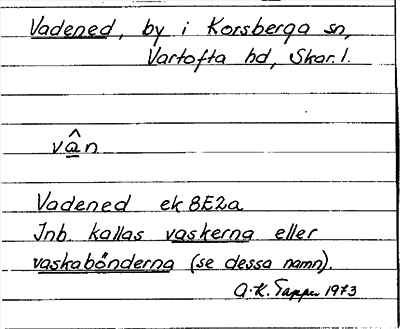 Vadened, by i Korsberga sn,
Vartofta hd, Skar. l.
vân
Vadened ek 8E2a
Inb. kallas vaskerna eller
vaskabönderna (se dessa namn).
A.K. Tapper 1973